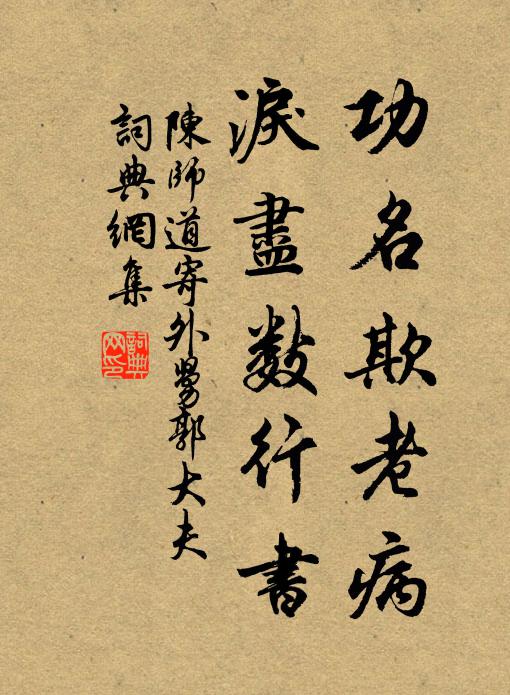 功名欺老病
淚盡數行書
陳師道寄外舅郭大夫
詞典網集
詞典網印